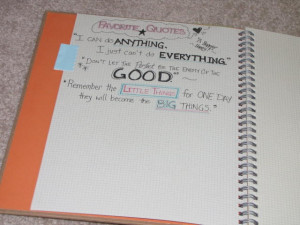 FAVORITE QUOTES
"I can do ANYTHING.
I just can't do EVERYTHING."
"Don't let the Perfect be the enemy of the
GOOD"
"Remember the LITTLE THINGS for ONE DAY
they will become the BIG THINGS."